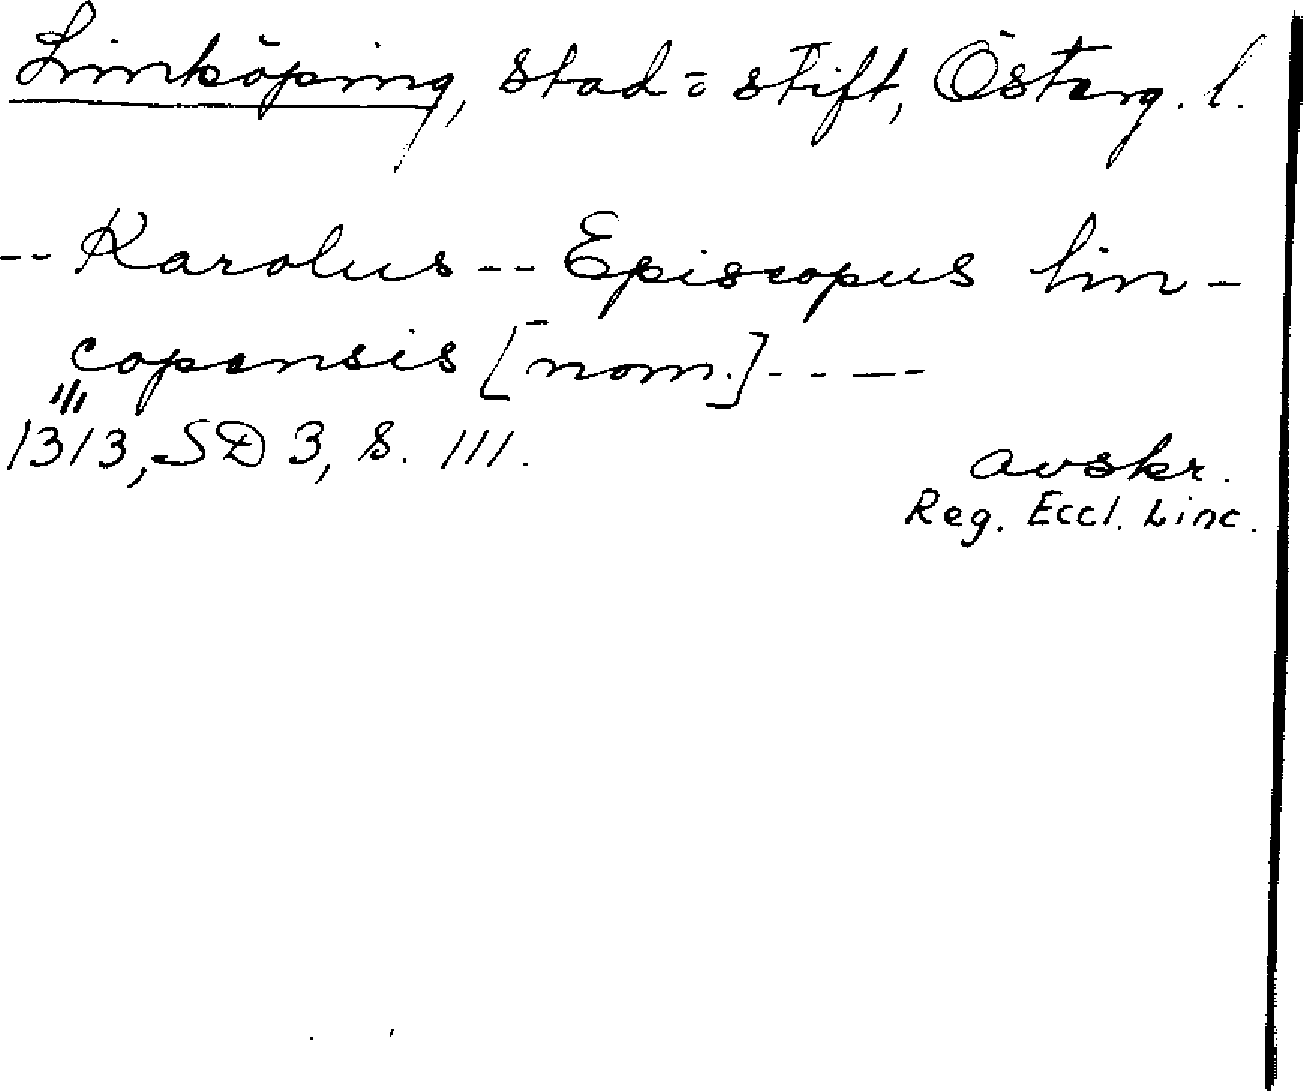 Linköping, stad = stift, Österg. l.
-- Karolus -- Episcopus lin-
copensis [nom.] ----
1/11
1313, SD 3, s. 111.
avskr.
Reg. Eccl. Linc.